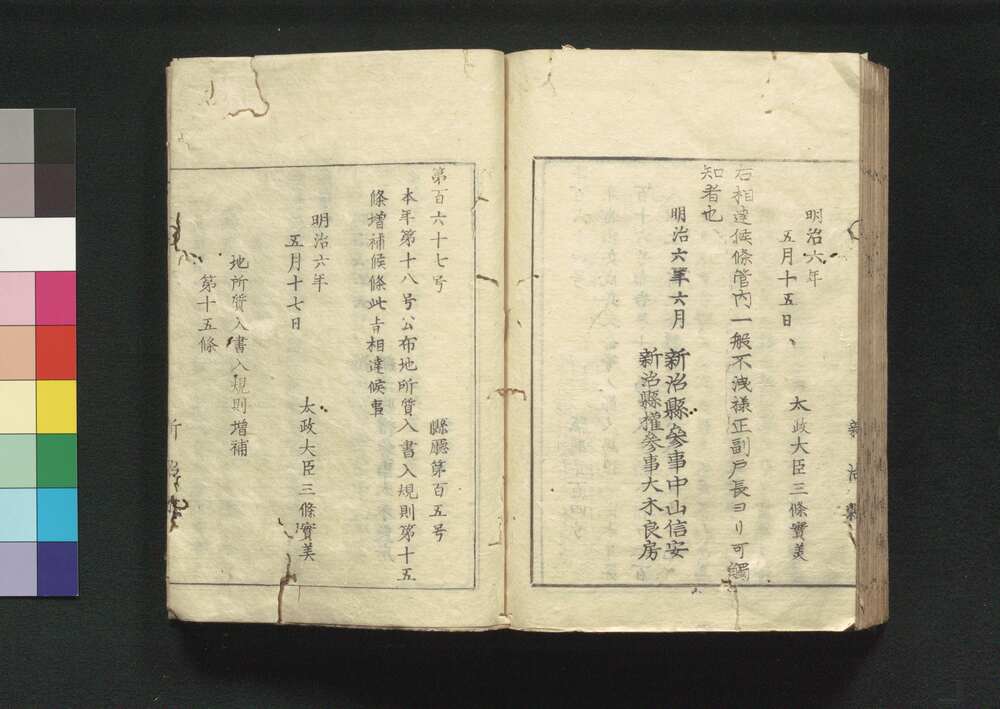 明治六年
五月十五日
太政大臣三條實美
右相達候條管内一般不洩樣正副戸長ヨリ可觸
知者也
明治六年六月
新治縣參事中山信安
新治縣權參事大木良房
第百六十七号
縣廳第百五号
本年第十八号公布地所質入書入規則第十五
條増補候條此旨相達候事
明治六年
五月十七日
太政大臣三條實美
地所質入書入規則増補
第十五條